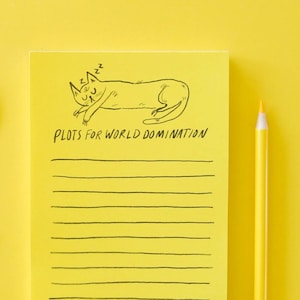 z
z
z
z
PLOTS FOR WORLD DOMINATION